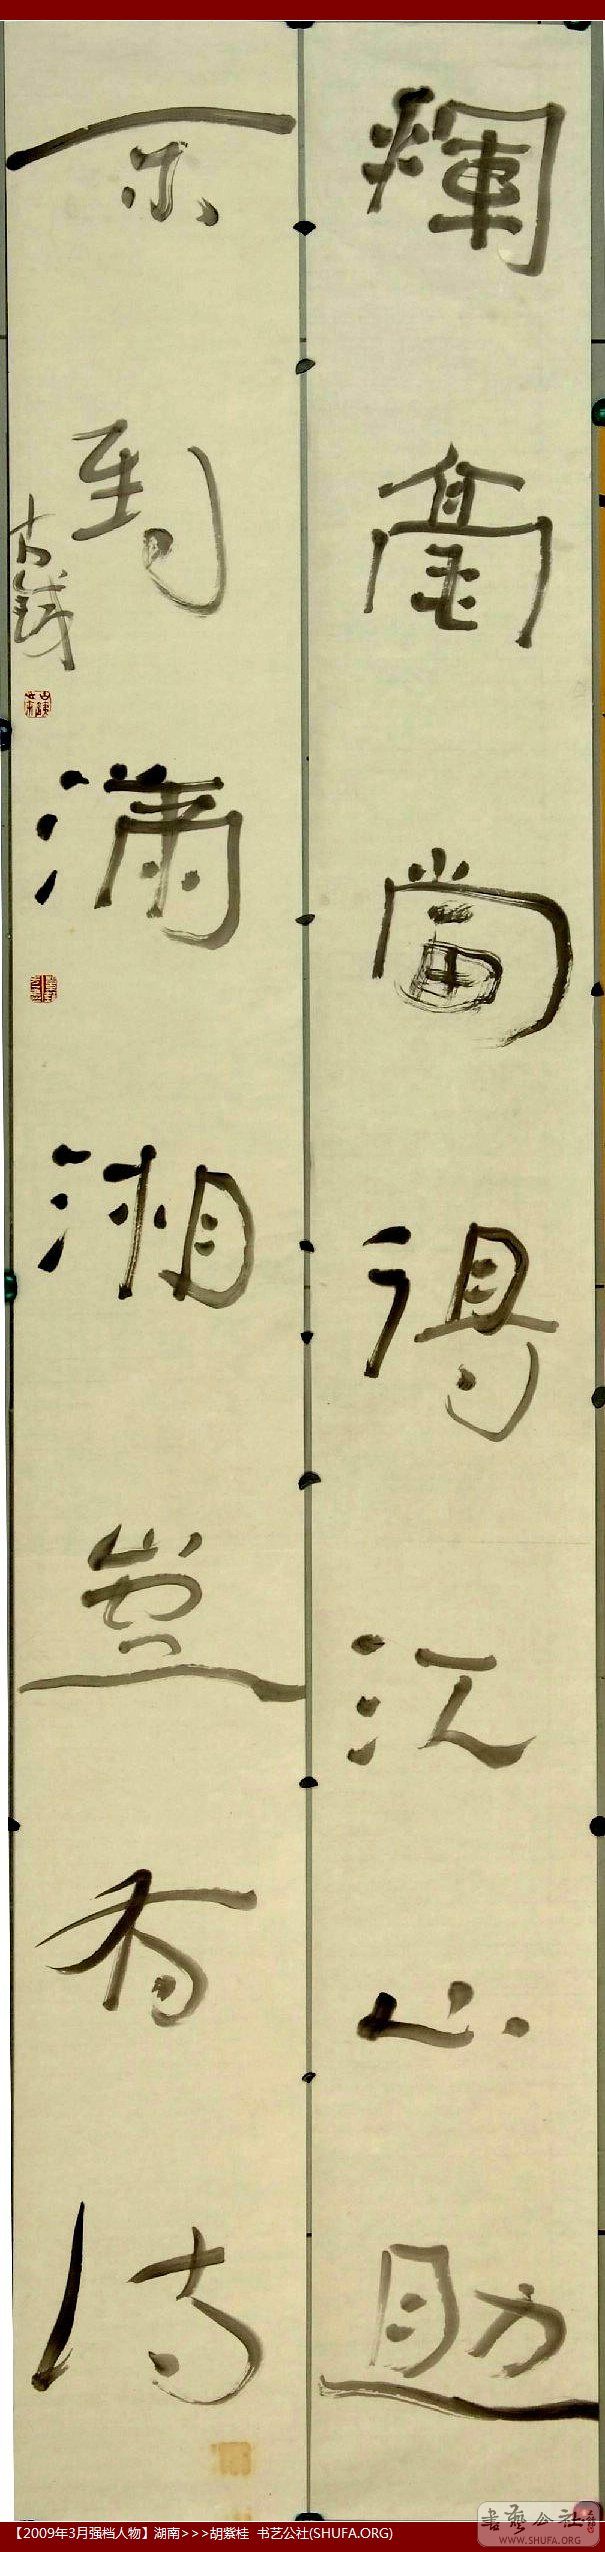 揮毫當得江山助
不到瀟湘豈有詩
古錢
【2009年3月强档人物】湖南>>>胡紫桂 书艺公社(SHUFA.ORG)
書藝公社
WWW.SHUFA.ORG